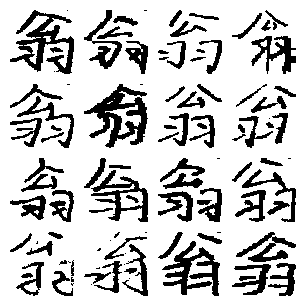 翁翁翁翁
翁翁翁翁
翁翁翁翁
翁翁翁翁